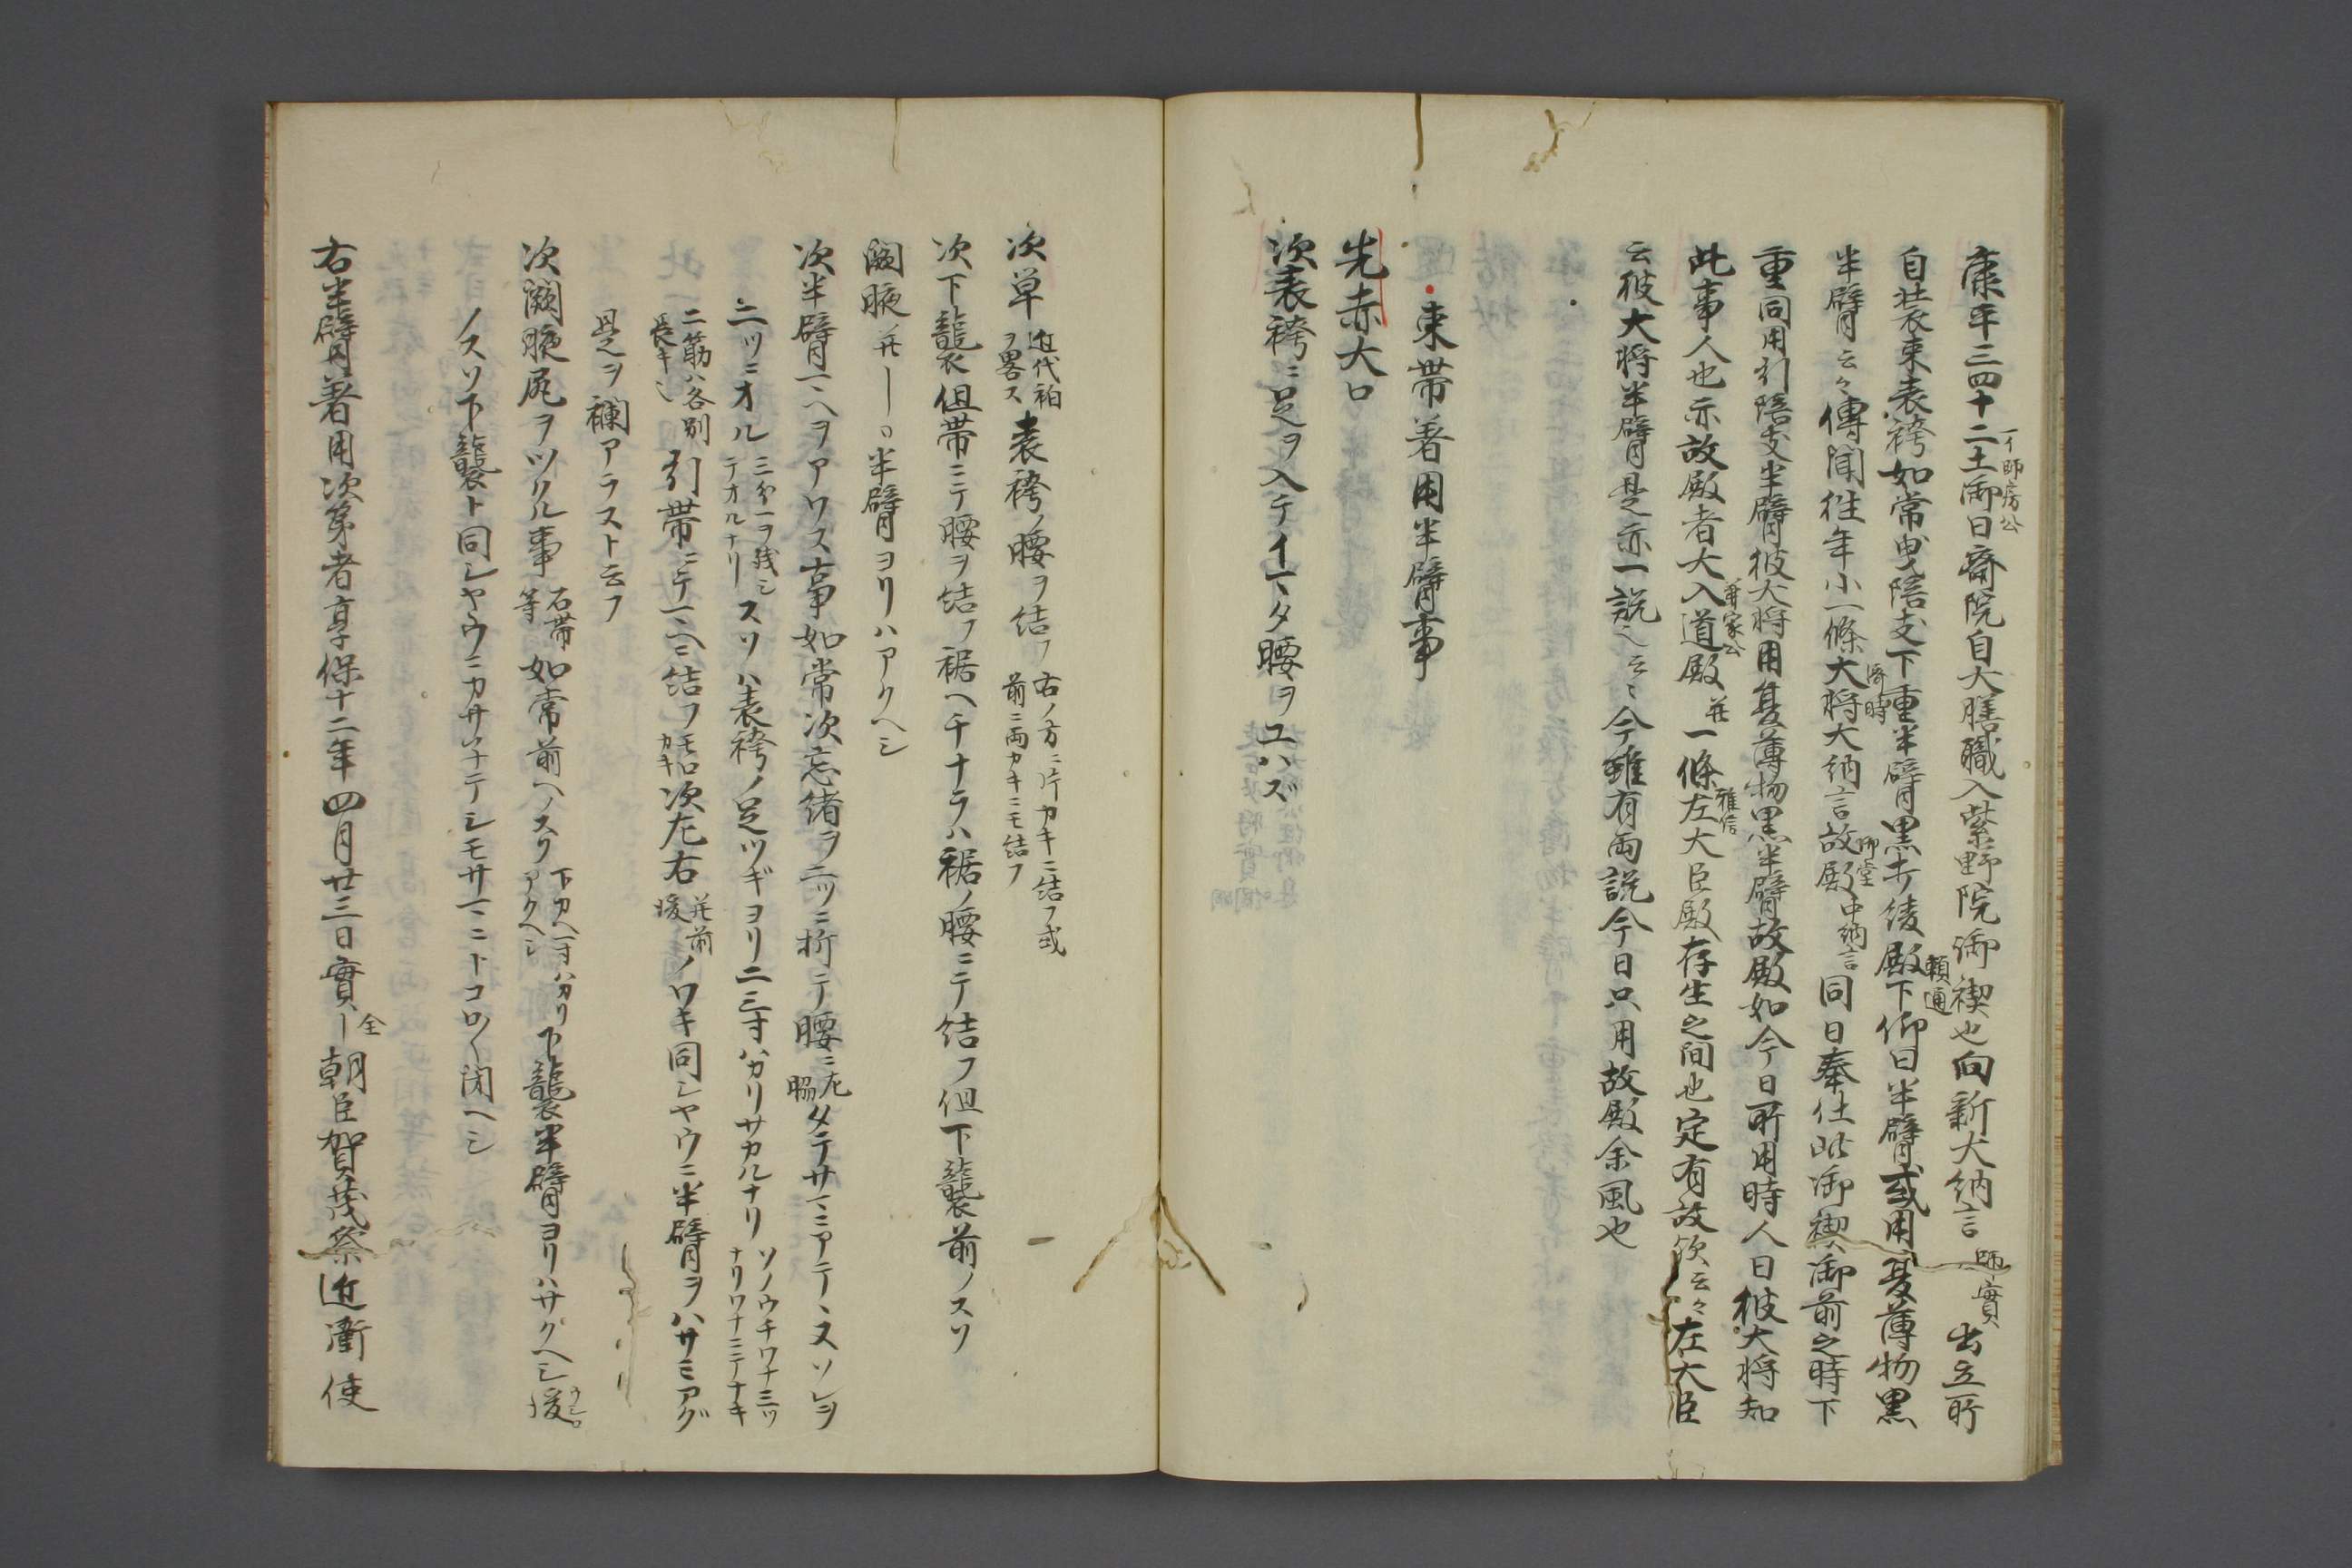 康平三四十二土御日斎院自大膳職入紫野院御禊也向新大納言師実出立所
一イ師房公
自装束表袴如常曳陪支下重半臂黒キ綾殿下仰曰半臂或用夏薄物黒
頼通
半臂云々傳聞往年小一條大将大納言故殿中納言同日奉仕此御禊御前之時下
済時
御堂
重同用引陪支半臂彼大将用夏薄物黒半臂故殿如今日所用時人曰彼大将知
此事人也亦故殿者大入道殿并一條左大臣殿存生之間也定有故歟云々左大臣
兼家公
雅信
云彼大将半臂是亦一説也云々今雖有両説今日只用故殿余風也
束帯著用半臂事
先赤大口
次表袴ニ足ヲ入テイマタ腰ヲユハズ
次単近代袙ヲ畧ス表袴ノ腰ヲ結フ右ノ方ニ片カキニ結フ或前ニ両カキニモ結フ
次下襲但帯ニテ腰ヲ結フ裾ヘチナラハ裾ノ腰ニテ結フ但下襲前ノスソ
闕腋并半臂ヨリハアクヘシ
次半臂一ヘヲアワス事如常次忘緒ヲ二ツニ折テ腰ニ左脇タテサマニアテヽスソレヲ
二ツニオル三分一ヲ残シテオルナリスソハ表袴ノ足ツギヨリ二三寸ハカリサカルナリソノウチワナ三ツナリワナニテナキ
二筋ハ各別長キ也引帯ニテ一ヘニ結フモロカキ次左右并前後ノワキ同シヤウニ半臂ヲハサミアグ
是ヲ襴アラスト云フ
次闕腋尻ヲツクル事石帯等如常前ヘノスソ下カヘ一寸ハカリアクヘシ下襲半臂ヨリハサクヘシ後ウシロ
ノスソ下襲ト同シヤウニカサ子テシモサマニトコロ〳〵閉ヘシ
右半臂著用次第者享保十二年四月廿三日實全朝臣賀茂祭近衛使